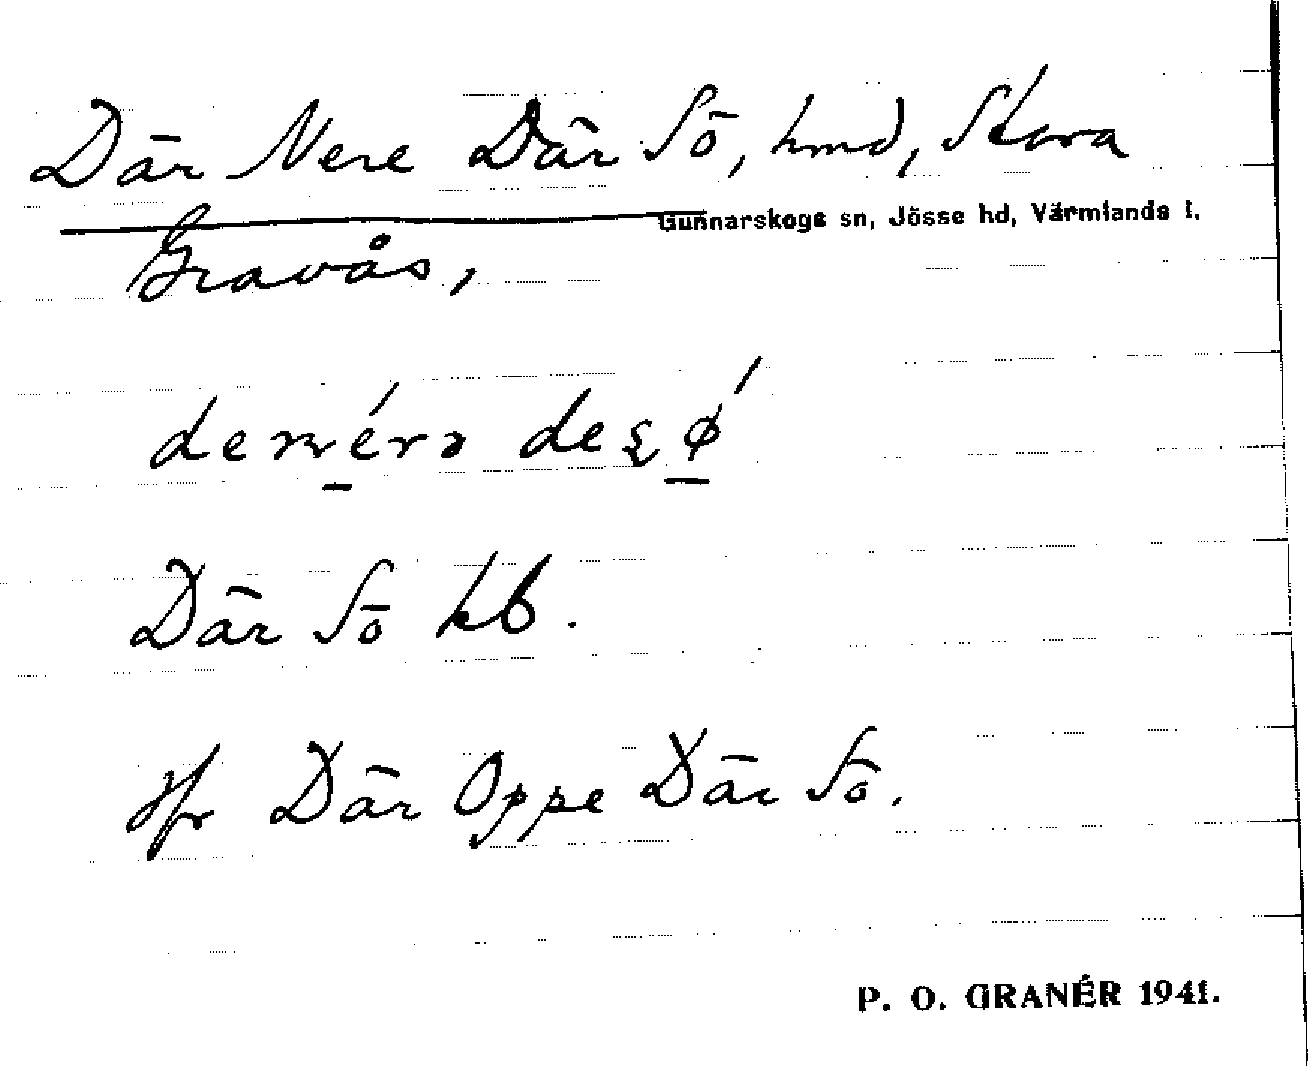 Där Nere Där Sö, hmd, Stora
Gunnarskogs sn, Jösse hd, Värmlands l.
Gravås,
de
Där Sö kb.
Jfr Där Oppe Där Sö.
P. O. GRANÉR 1941.